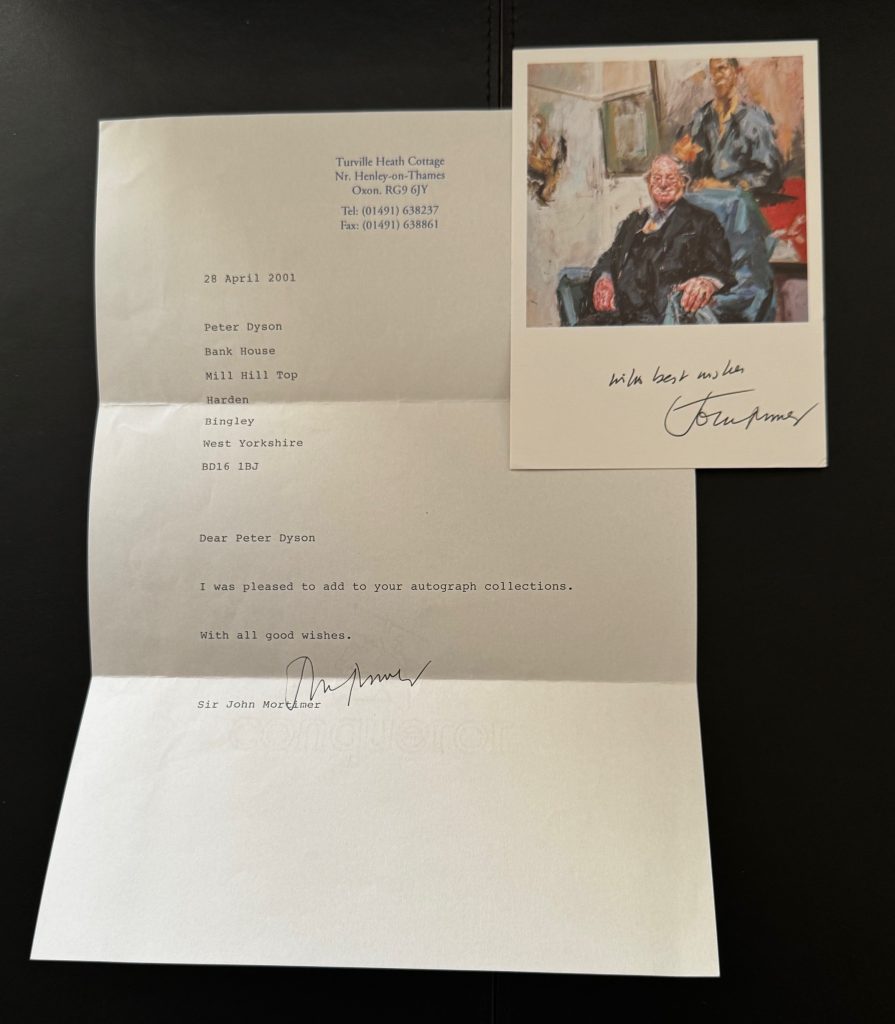 Turville Heath Cottage
Nr. Henley-on-Thames
Oxon. RG9 6JY
Tel: (01491) 638237
Fax: (01491) 638861
28 April 2001
Peter Dyson
Bank House
Mill Hill Top
Harden
Bingley
West Yorkshire
BD16 1BJ
Dear Peter Dyson
I was pleased to add to your autograph collections.
With all good wishes.
Sir John Mortimer
conqueror
with best wishes
John Mortimer